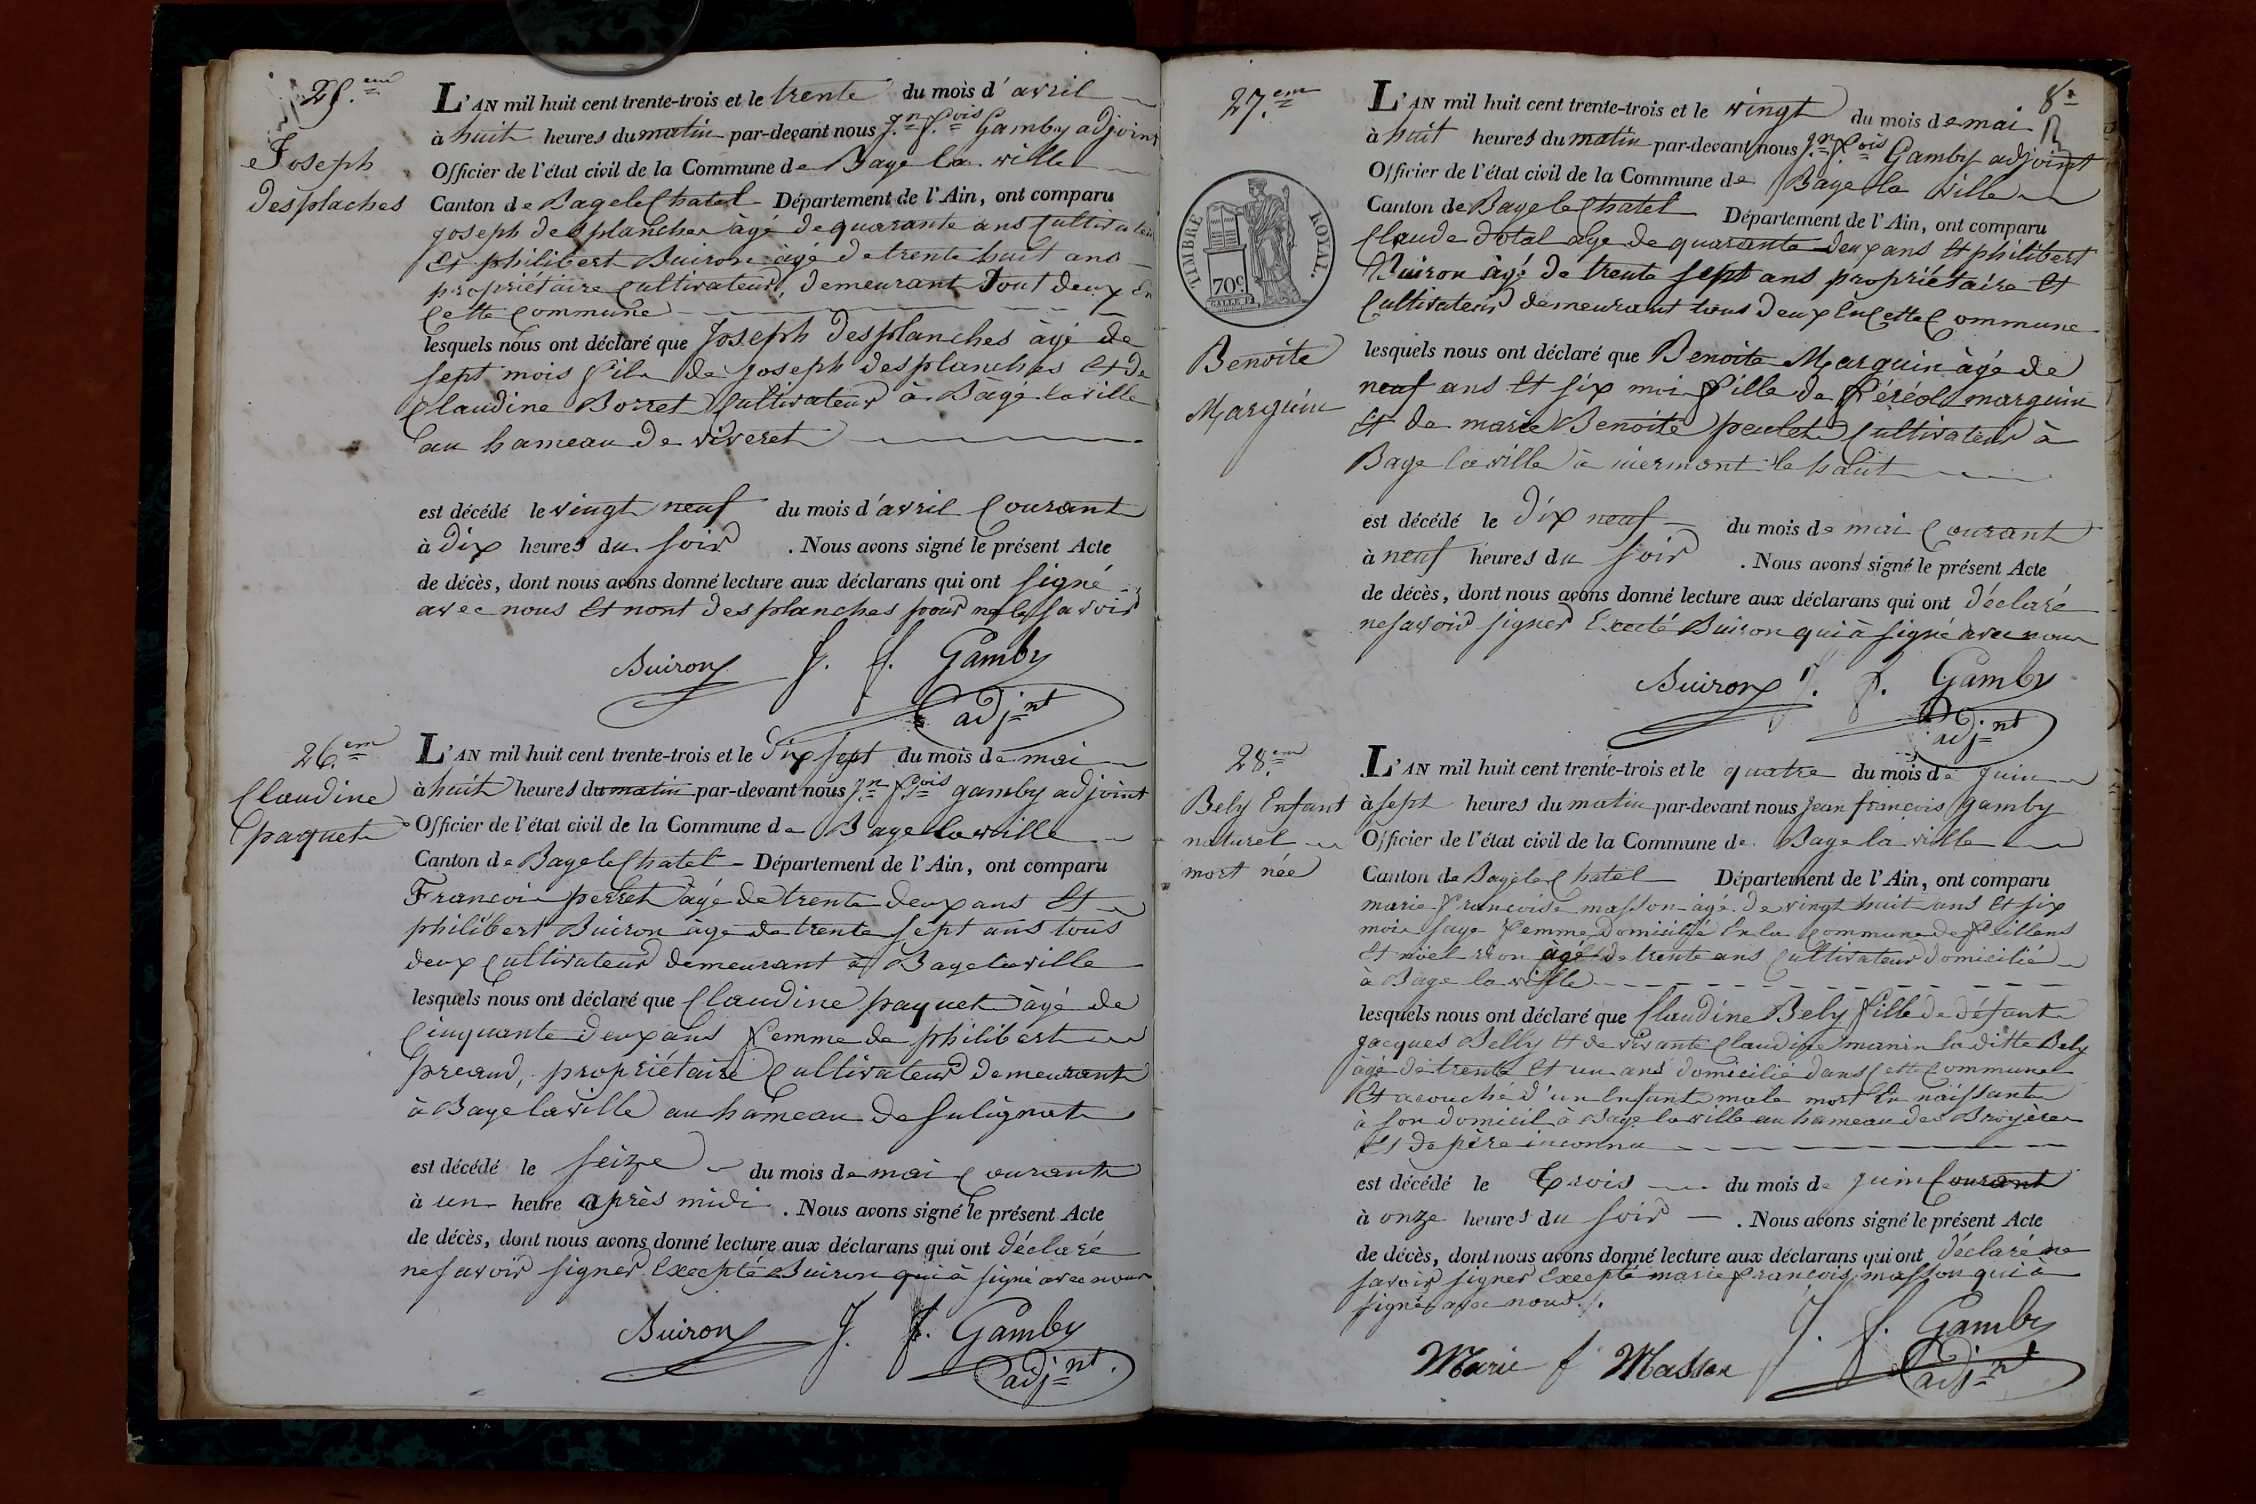 25.em
Joseph
desplaches
L'AN mil huit cent trente-trois et le trente du mois d'avril
à huit heures du matin par-devant nous J.n f.ois Gamby adjoint
Officier de l'état civil de la Commune de Bage la ville
Canton de Bage le Chatel Département de l'Ain, ont comparu
joseph desplanches àgé de quarante ans Cultivateur
Et philibert Buiron àgé de trente huit ans
propriétaire Cultivateur, demeurant tout deux En
Cette Commune
lesquels nous ont déclaré que Joseph desplanches àgé de
sept mois fils de joseph desplanches Et de
Claudine Borret Cultivateur à Bàgé la ville
au hameau de viveret
est décédé le vingt neuf du mois d'avril Courant
à dix heures du soir . Nous avons signé le présent Acte
de décès, dont nous avons donné lecture aux déclarans qui ont signé
avec nous Et nont desplanches pour ne le savoir
Buiron J. f. Gamby
adj.nt
26.em
Claudine
paquet
L'AN mil huit cent trente-trois et le dix sept du mois de mai
à huit heures du matin par-devant nous J.n f.ois gamby adjoint
Officier de l'état civil de la Commune de Bage la ville
Canton de Bage le Chatel Département de l'Ain, ont comparu
Francois perret àgé de trente deux ans Et
philibert Buiron àgé de trente sept ans tous
deux Cultivateur demeurant à Bage la ville
lesquels nous ont déclaré que Claudine paquet àgé de
Cinquante deux ans femme de philibert
preaud, propriétaire Cultivateur demeurant
à Bage la ville au hameau de sulignat
est décédé le seize du mois de mai Courant
à un heure après midi . Nous avons signé le présent Acte
de décès, dont nous avons donné lecture aux déclarans qui ont déclaré
ne savoir signer Excepté Buiron qui à signé avec nous
Buiron J. f. Gamby
adj.nt
8
27.em
TIMBRE ROYAL.
70c.
Benoite
Marguin
L'AN mil huit cent trente-trois et le vingt du mois de mai
à huit heures du matin par-devant nous J.n f.ois Gamby adjoint
Officier de l'état civil de la Commune de Bage la ville
Canton de Bage le Chatel Département de l'Ain, ont comparu
Claude dotal àge de quarante deux ans Et philibert
Buiron àgé de trente sept ans propriétaire Et
Cultivateur demeurant tous deux En Cette Commune
lesquels nous ont déclaré que Benoite Marguin àgé de
neuf ans Et six moi fille de féréol marguin
Et de marie Benoite peulet Cultivateur à
Bage la ville à le haut
est décédé le dix neuf du mois de mai Courant
à neuf heures du soir . Nous avons signé le présent Acte
de décès, dont nous avons donné lecture aux déclarans qui ont déclaré
ne savoir signer Buiron qui à signé avec nous
Buiron J. f. Gamby
adj.nt
28.em
Bely Enfant
naturel
mort née
L'AN mil huit cent trente-trois et le quatre du mois de juin
à sept heures du matin par-devant nous jean françois gamby
Officier de l'état civil de la Commune de Bage la ville
Canton de Bagé le Chatel Département de l'Ain, ont comparu
marie francoise masson àgé de vingt huit ans Et six
mois sage femme domicilié En la Commune de feillens
Et noël àgé de trente ans Cultivateur domicilié
à Bage la ville
lesquels nous ont déclaré que Claudine Bely fille de défunt
jacques Belly Et de vivante Claudine manin la ditte Bely
àgé de trente Et un ans domicilié dans Cette Commune
Et acouché d'un Enfant male mort En naissant
à son domicil à Bage la ville au hameau des Broyères
Et de père inconnu
est décédé le trois du mois de juin Courant
à onze heures du soir . Nous avons signé le présent Acte
de décès, dont nous avons donné lecture aux déclarans qui ont déclaré ne
savoir signer Excepté marie françois masson qui à
signé avec nous
Marie f Masson J. f. Gamby
adj.nt